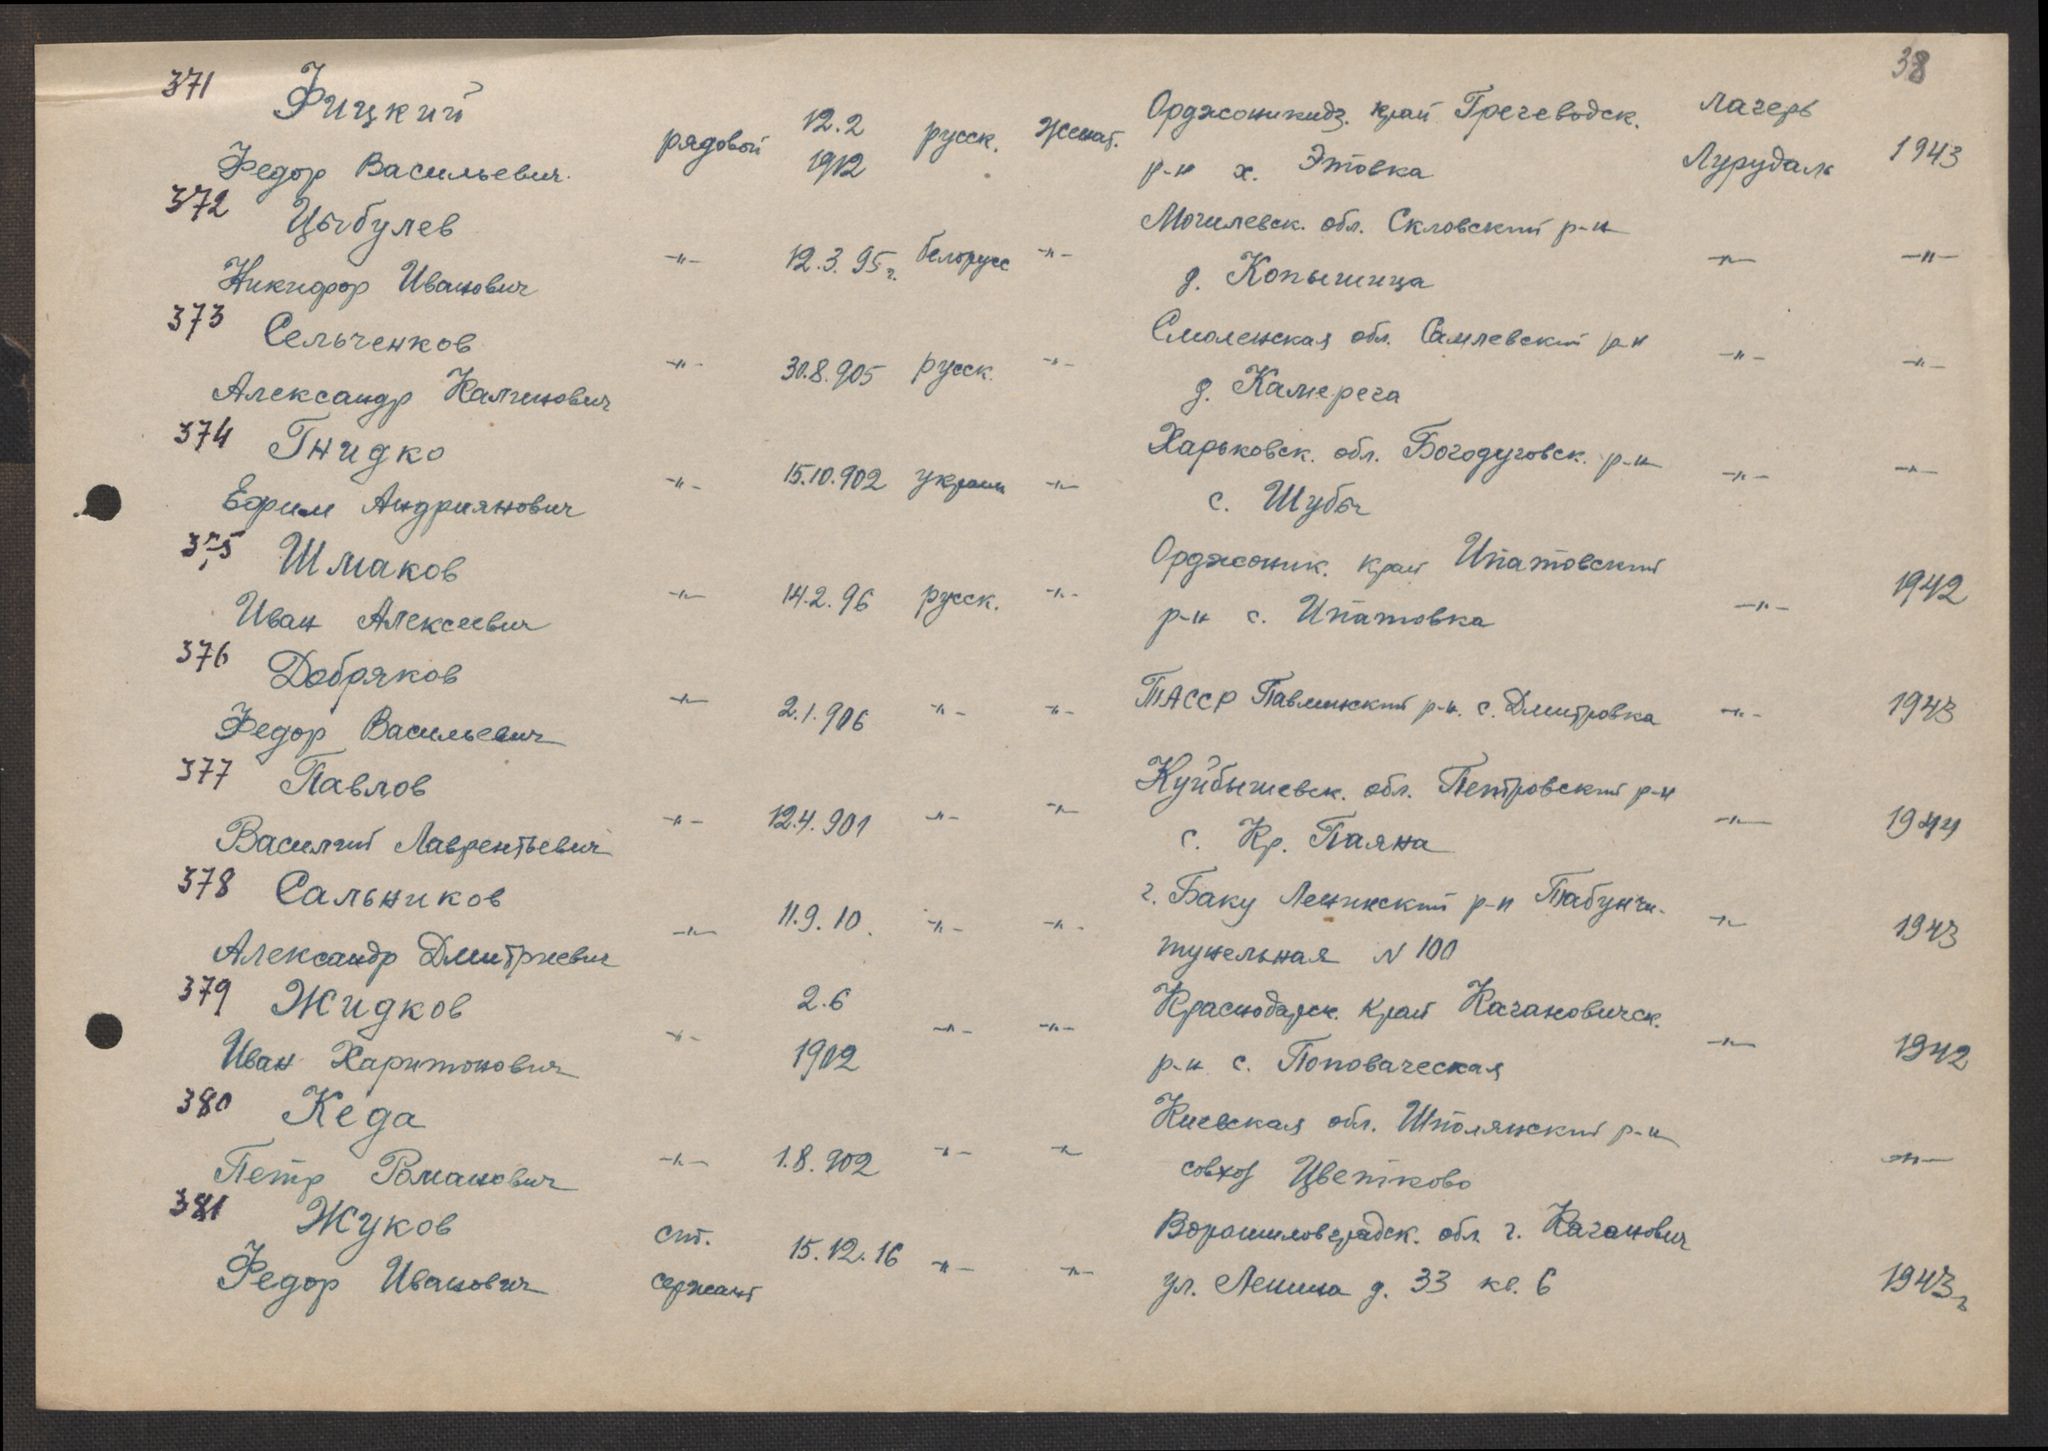 38
371 Фицкий
Федор Васильевич рядовой 12.2 1912 русск. женат. Орджоникидз. край Гречеводск. р-н х. Этовка лагерь Лурудаль 1943
372 Цыбулев
Никифор Иванович -"- 12.3.95г. белорусс -"- Могилевск. обл. Скловский р-н д. Копышица -"- -"-
373 Сельченков
Александр Калинович -"- 30.8.905 русск. -"- Смоленская обл. Самлевский р-н д. Камерега -"- -"-
374 Гнидко
Ефрим Андриянович -"- 15.10.902 украин -"- Харьковск. обл. Богодуховск. р-н с. Шубы -"- -"-
375 Шмаков
Иван Алексеевич -"- 14.2.96 русск. -"- Орджоник. край Ипатовский р-н с. Ипатовка -"- 1942
376 Добряков
Федор Васильевич -"- 2.1.906 -"- -"- ТАССР Павлинский р-н. с. Дмитровка -"- 1943
377 Павлов
Василий Лаврентьевич -"- 12.4.901 -"- -"- Куйбышевск. обл. Петровский р-н с. Кр. Паяна -"- 1944
378 Сальников
Александр Дмитриевич -"- 11.9.10. -"- -"- г. Баку Ленинский р-н Табунчи-тунельная N 100 -"- 1943
379 Жидков
Иван Харитонович -"- 2.6 1902 -"- -"- Краснодарск. край Кагановичск. р-н с. Поповаческая -"- 1942
380 Кеда
Петр Романович -"- 1.8.902 -"- -"- Киевская обл. Шполянский р-н совхоз Цветково -"-
381 Жуков
Федор Иванович ст. сержант 15.12.16 -"- -"- Ворошиловградск. обл. г. Каганович ул. Ленина д. 33 кв. 6 1943г